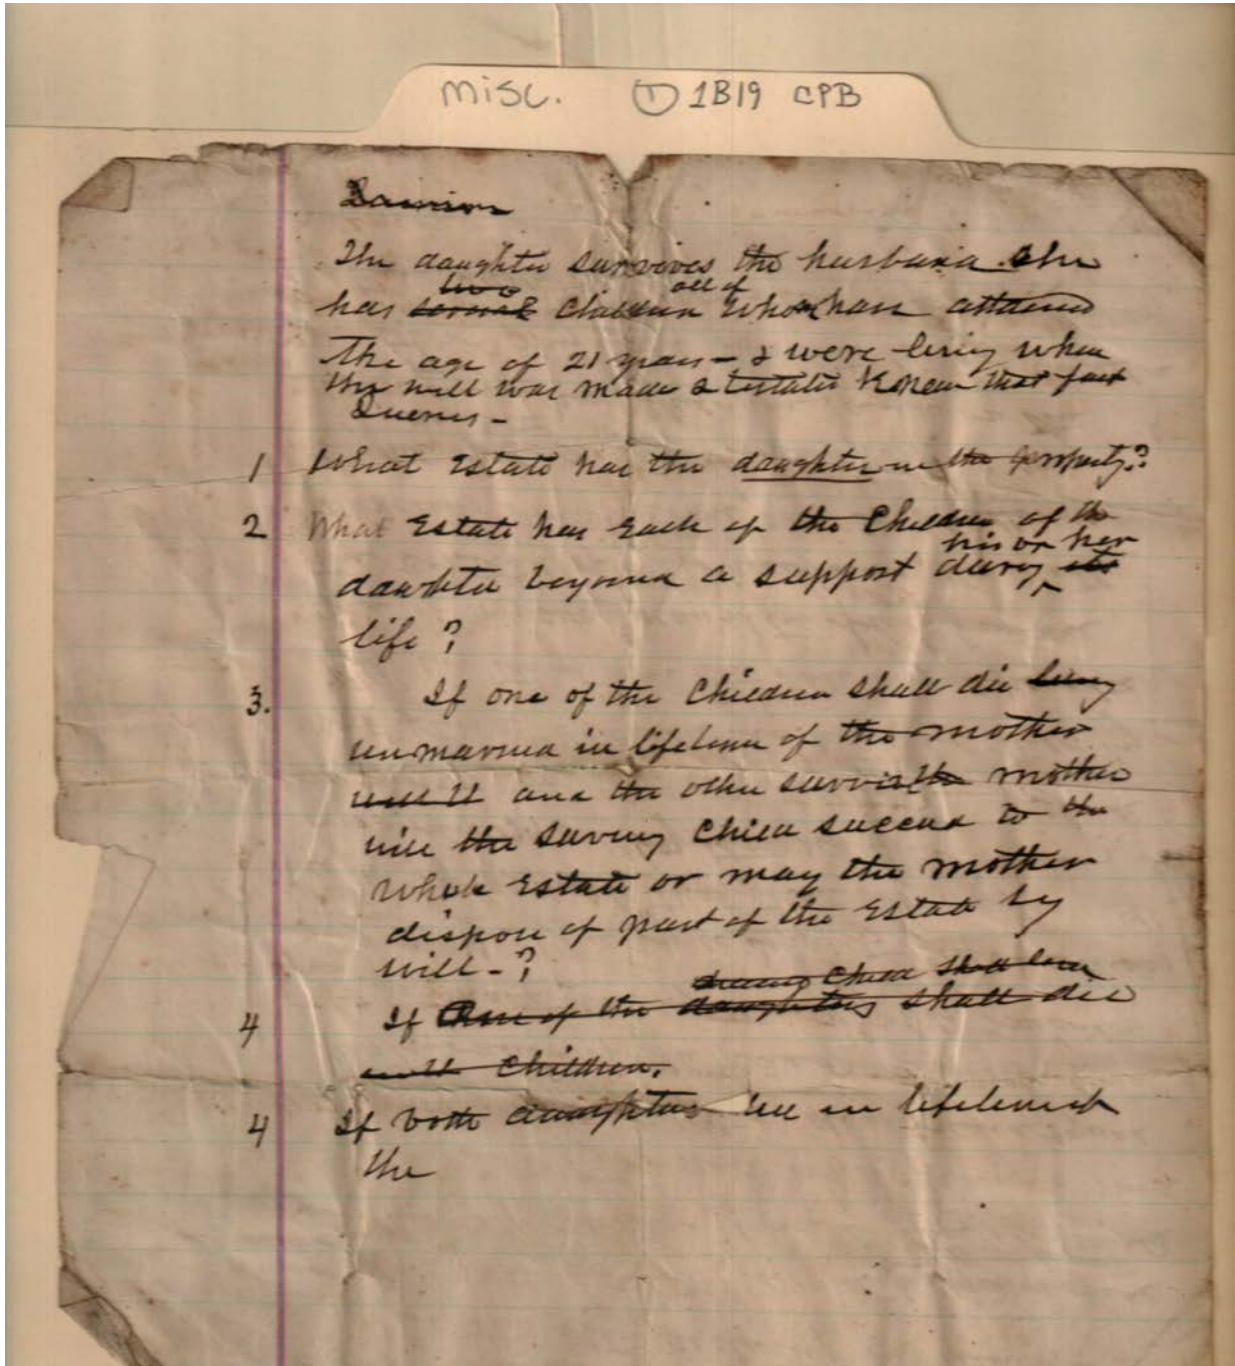 misc. ① 1B19 CPB
The daughter survives the husband. She
two all of
has several children who have attained
the age of 21 years - & were living when
the will was made & testator knew that fact
Queries -
1 What Estate has the daughter in the property?
2 What Estate has each of the children of the
his or her
daughter beyond a support during its
life?
3. If one of the children shall die
unmarried in lifetime of the mother
will it and the other survive the mother
will the surviving child succeed to the
whole Estate or may the mother
dispose of part of the Estate by
will - ?
child shall
4 If one of the daughters shall die
with children.
4 If both daughters in lifetime of
the